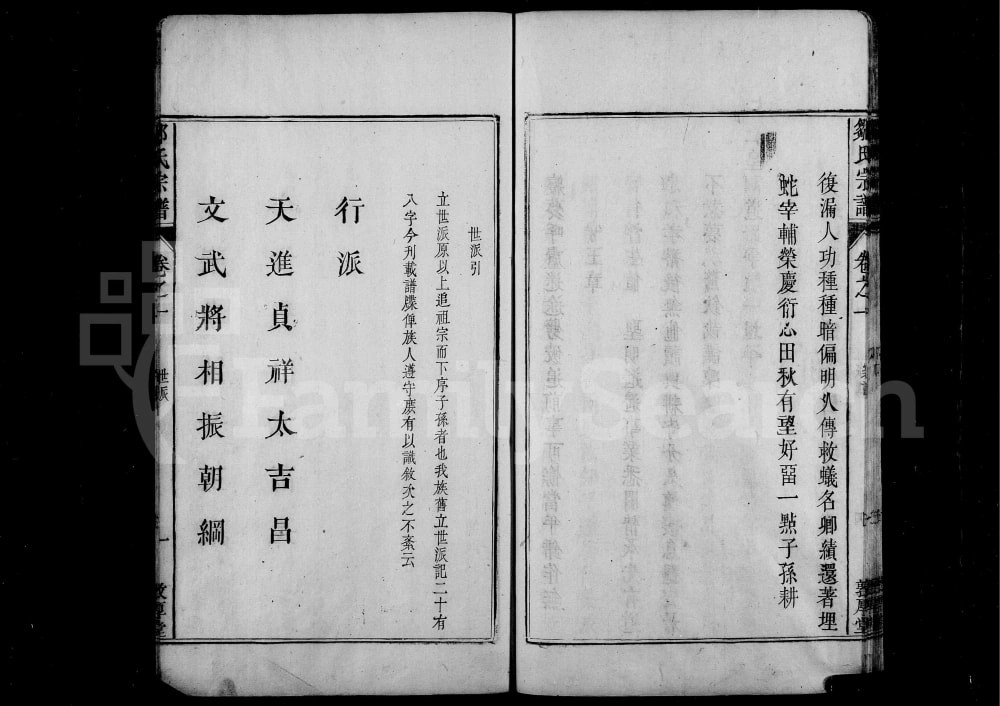 鄒氏宗譜
卷之一
敦厚堂
復漏人功種種暗偏明久傳救蟻名卿績還著埋
蛇宰輔榮慶衍心田秋有望好留一點子孫耕
世派引
立世派原以上追祖宗而下序子孫者也我族舊立世派記二十有
八字今刊載譜牒俾族人遵守庶有以識敘次之不紊云
行派
天進貞祥太吉昌
文武將相振朝綱
氏宗譜
卷之一
世派
一
敦厚堂
FamilySearch